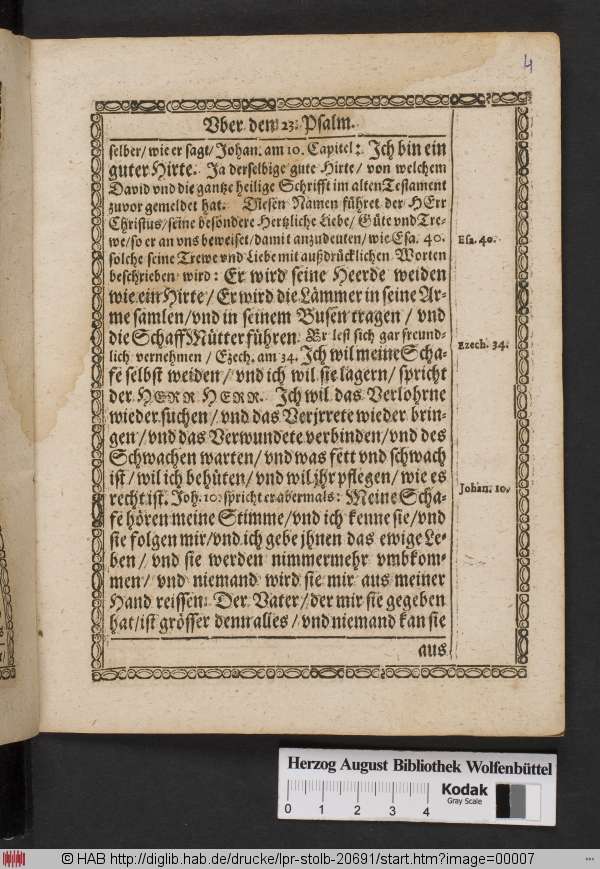 4
Vber den 23. Psalm.
selber/ wie er sagt/ Johan. am 10. Capitel: Ich bin ein
guter Hirte. Ja derselbige gute Hirte/ von welchem
David vnd die gantze heilige Schrifft im alten Testament
zuvor gemeldet hat. Diesen Namen führet der HErr
Christus/ seine besondere Hertzliche Liebe/ Güte vnd Tre-
we/ so er an vns beweiset/ damit anzudeuten/ wie Esa. 40.
Esa. 40.
solche seine Trewe vnd Liebe mit außdrücklichen Worten
beschrieben wird: Er wird seine Heerde weiden
wie ein Hirte/ Er wird die Lämmer in seine Ar-
me samlen/ vnd in seinem Busen tragen/ vnd
die Schaff Mütter führen. Er lest sich gar freund-
lich vernehmen/ Ezech. am 34. Ich wil meine Scha-
Ezech. 34.
fe selbst weiden/ vnd ich wil sie lägern/ spricht
der HERR HERR. Ich wil das Verlohrne
wieder suchen/ vnd das Verjrrete wieder brin-
gen/ vnd das Verwundete verbinden/ vnd des
Schwachen warten/ vnd was fett vnd schwach
ist/ wil ich behüten/ vnd wil jhr pflegen/ wie es
Johan. 10.
recht ist. Joh. 10. spricht er abermals: Meine Scha-
fe hören meine Stimme/ vnd ich kenne sie/ vnd
sie folgen mir/ vnd ich gebe jhnen das ewige Le-
ben/ vnd sie werden nimmermehr vmbkom-
men/ vnd niemand wird sie mir aus meiner
Hand reissen. Der Vater/ der mir sie gegeben
hat/ ist grösser denn alles/ vnd niemand kan sie
aus
Herzog August Bibliothek Wolfenbüttel
0 1 2 3 4
Kodak
Gray Scale
© HAB http://diglib.hab.de/drucke/lpr-stolb-20691/start.htm?image=00007